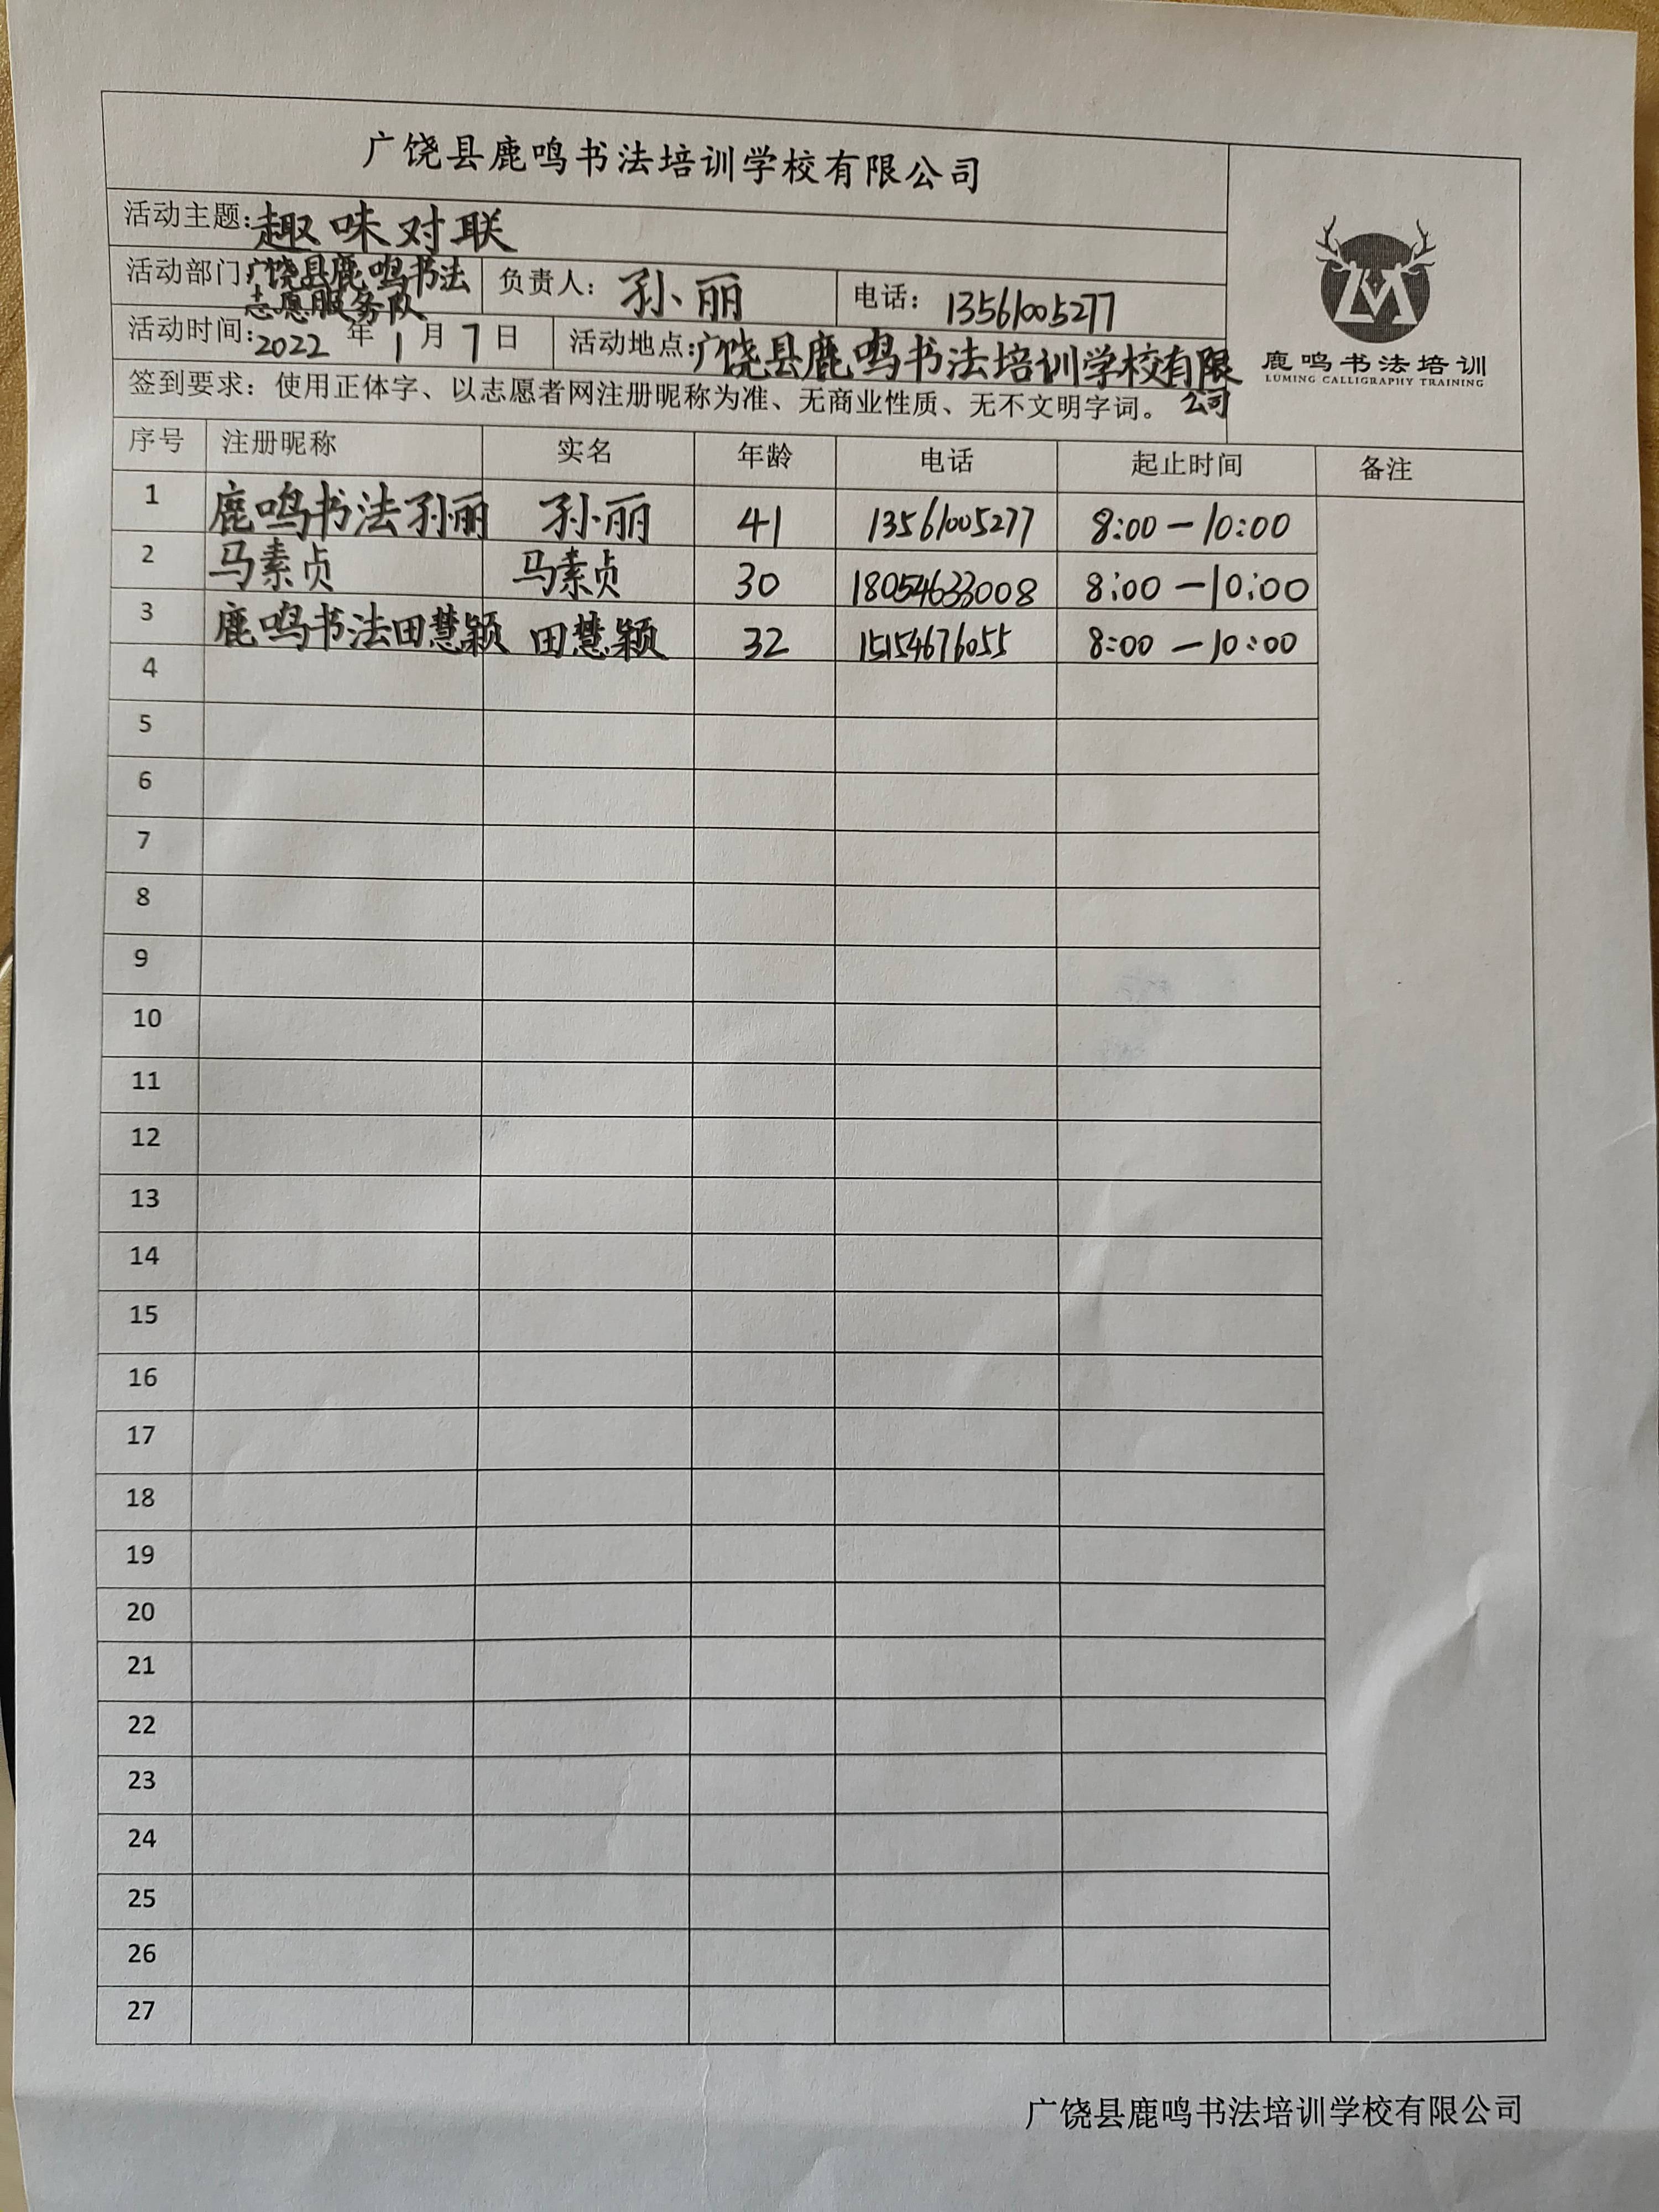 广饶县鹿鸣书法培训学校有限公司
活动主题:趣味对联
活动部门:广饶县鹿鸣书法志愿服务队 负责人: 孙丽 电话: 13561005277
活动时间:2022年1月7日 活动地点:广饶县鹿鸣书法培训学校有限公司
签到要求: 使用正体字、以志愿者网注册昵称为准、无商业性质、无不文明字词。
鹿鸣书法培训
LUMING CALLIGRAPHY TRAINING
序号 注册昵称 实名 年龄 电话 起止时间 备注
1 鹿鸣书法孙丽 孙丽 41 13561005277 8:00-10:00
2 马素贞 马素贞 30 18054633008 8:00-10:00
3 鹿鸣书法田慧颖 田慧颖 32 15154676055 8:00-10:00
4
5
6
7
8
9
10
11
12
13
14
15
16
17
18
19
20
21
22
23
24
25
26
27
广饶县鹿鸣书法培训学校有限公司